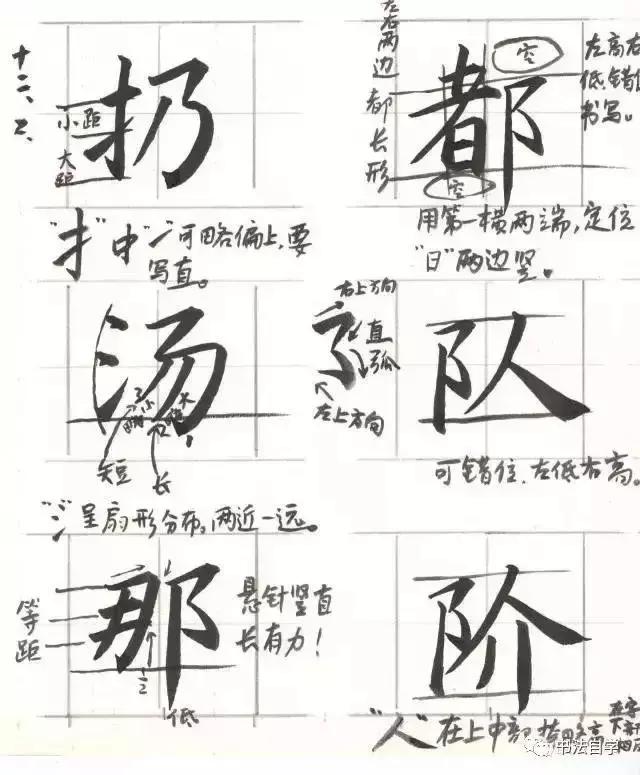 十二、2、
扔
小距
大距
"扌"中"㇀"可略偏上,要
写直。
都
左右两边都长形
空
空
左高右
低错
书写。
用第一横两端,定位
"日"两边竖。
汤
短
长
"氵"呈扇形分布,两近一远。
右上方向
直
弧
左上方向
队
可错位.左低右高。
那
等距
低
悬针竖直
长有力!
阶
"人"在上中部
书法自学